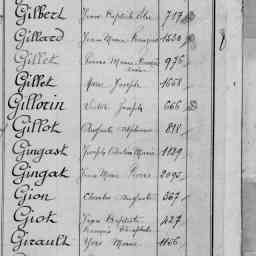 Gilbert Jean Baptiste 717
Gillard Jean Marie François 1630
Gillet Pierre Marie François 975
Gillet Yves Joseph 1668
Gillorin Victor Joseph 666
Gillot Auguste 818
Gingast Joseph Marie 1829
Gingat Jean Marie Pierre 2095
Gion Charles Auguste 367
Giot Jean Baptiste 427
François Théophile
Girault Yves Marie 1166